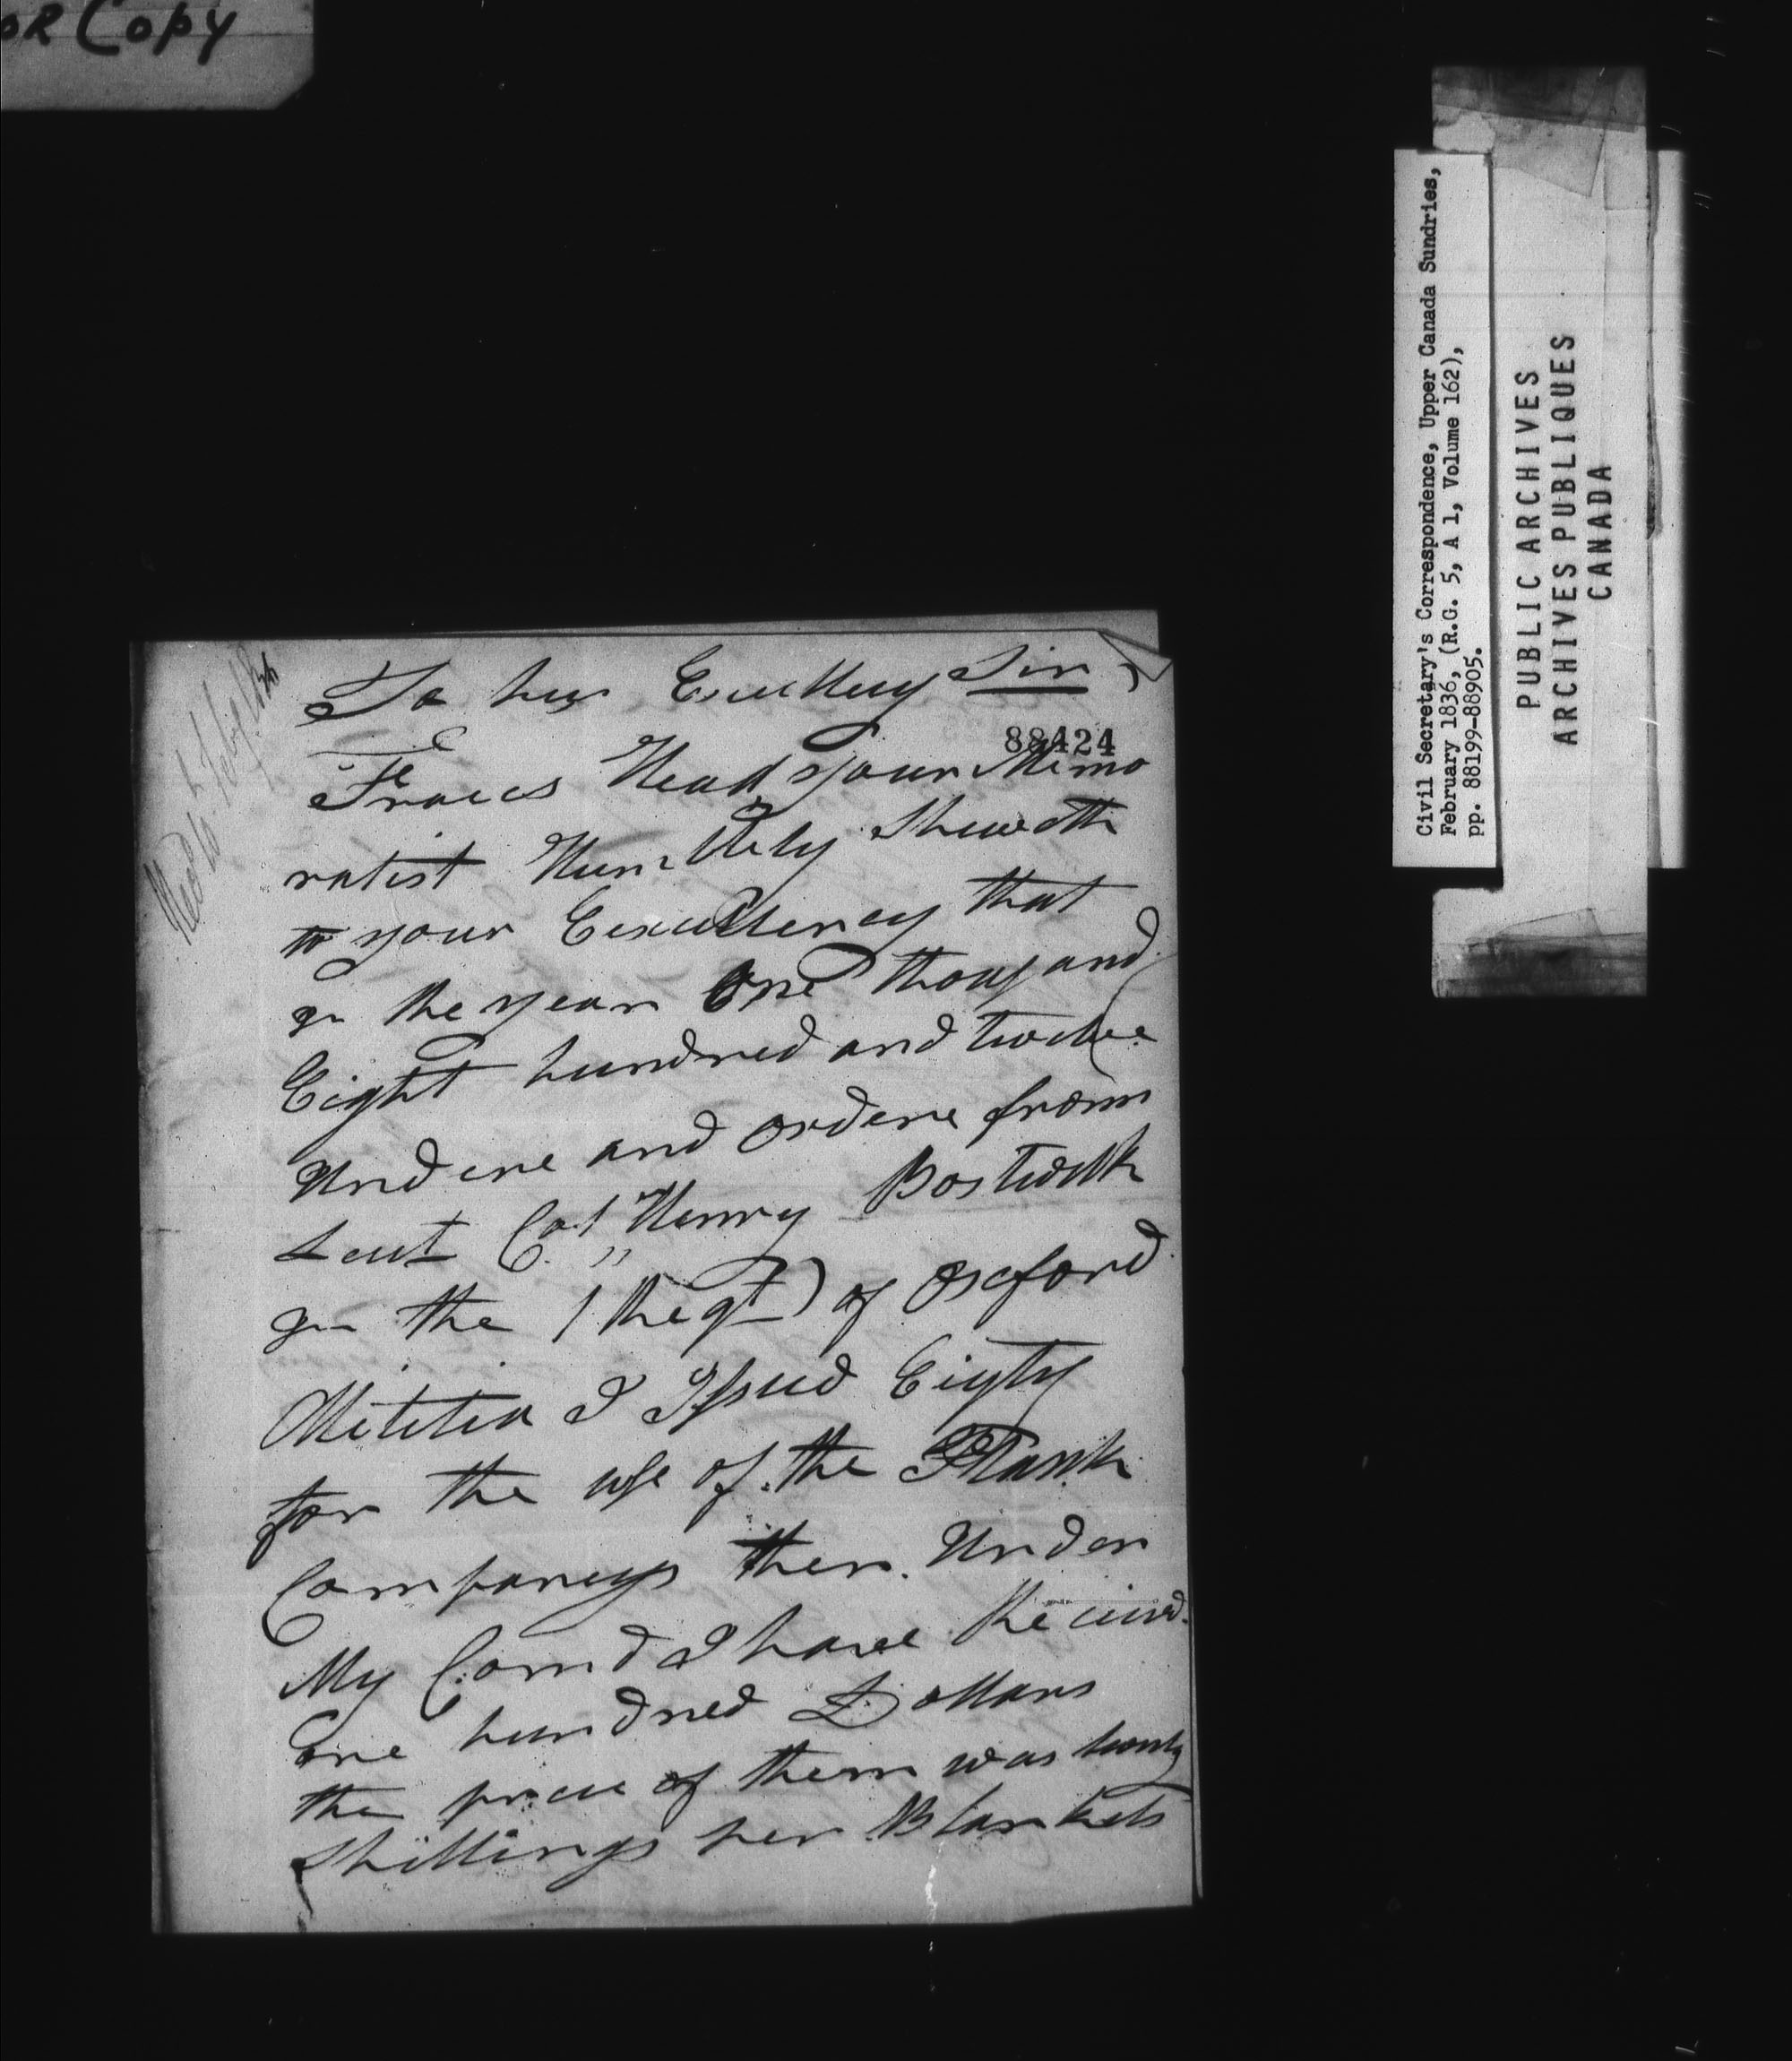 or Copy
To his Excellency Sir
88424
Frances Head your Memo
ralist Humbly Sheweth
to your Excellency that
in the year One thousand
Eight hundred and twelve
Undere and ordere from
Leut Col Henry Bostwick
in the 1 Regt of Oxford
Militia I Issued Eigty
for the use of the Flank
Companeys then Under
My Comd I have Received
One hundred Dollars
the price of them was twenty
Shillings per Blankets
Civil Secretary's Correspondence, Upper Canada Sundries,
February 1836, (R.G. 5, A 1, Volume 162),
pp. 88199-88905.
PUBLIC ARCHIVES
ARCHIVES PUBLIQUES
CANADA